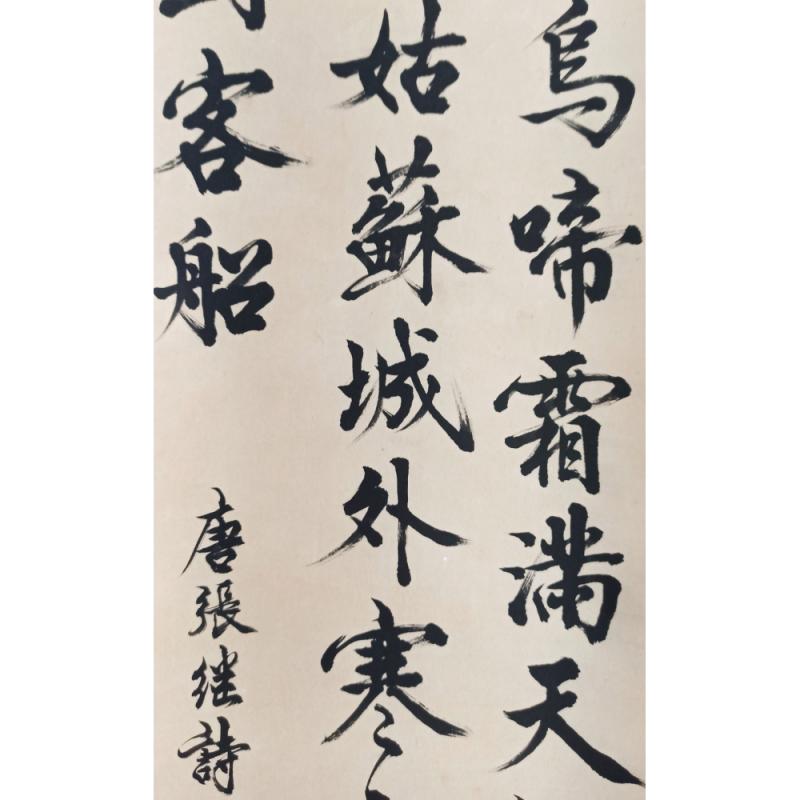 烏啼霜滿天
姑蘇城外寒
客船
唐張继詩